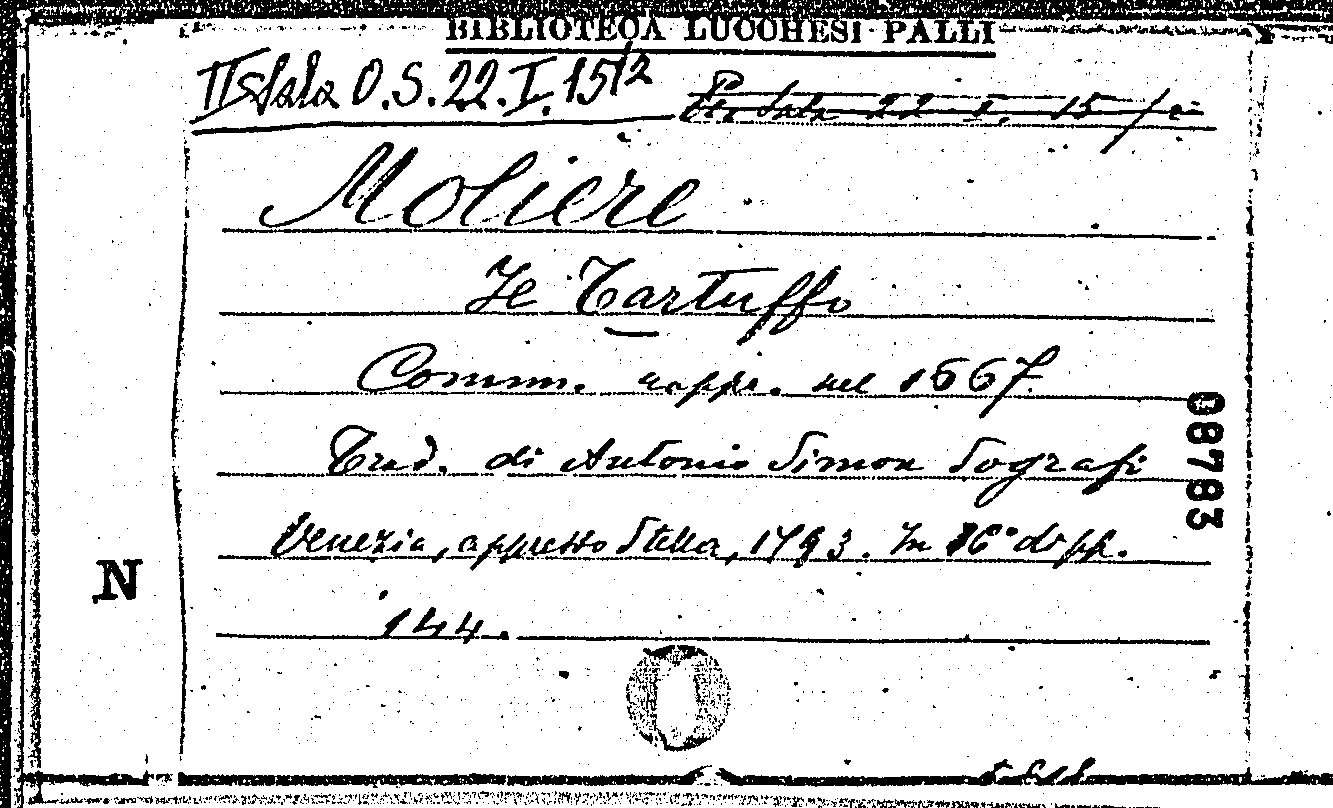 BIBLIOTECA LUCCHESI PALLI
II Sala O.S. 22. I. 15/2
Sala 22 I. 15
Moliere
Il Tartuffo
Comm. rappr. nel 1667.
Trad. di Antonio Simon Sografi
Venezia, appresso Stella, 1793. In 16° di pp.
144.
N
08783